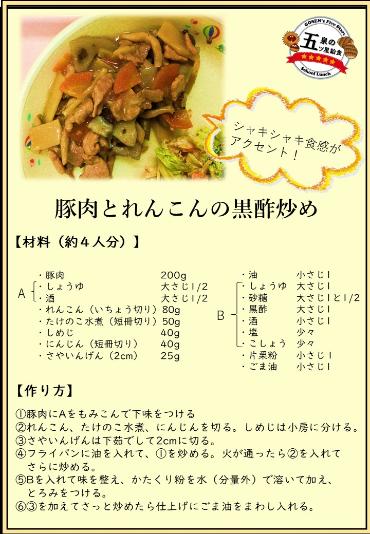 GOSEN's Five Stars
五泉の
五ツ星給食
★★★★★
School Lunch
シャキシャキ食感が
アクセント！
豚肉とれんこんの黒酢炒め
【材料（約４人分）】
A
・豚肉 200g
・しょうゆ 大さじ1/2
・酒 大さじ1/2
・れんこん（いちょう切り）80g
・たけのこ水煮（短冊切り）50g
・しめじ 40g
・にんじん（短冊切り） 40g
・さやいんげん（2cm） 25g
B
・油 小さじ1
・しょうゆ 大さじ1
・砂糖 大さじ1と1/2
・黒酢 大さじ1
・酒 小さじ1
・塩 少々
・こしょう 少々
・片栗粉 小さじ1
・ごま油 小さじ1
【作り方】
①豚肉にAをもみこんで下味をつける
②れんこん、たけのこ水煮、にんじんを切る。しめじは小房に分ける。
③さやいんげんは下茹でして2cmに切る。
④フライパンに油を入れて、①を炒める。火が通ったら②を入れて
さらに炒める。
⑤Bを入れて味を整え、かたくり粉を水（分量外）で溶いて加え、
とろみをつける。
⑥③を加えてさっと炒めたら仕上げにごま油をまわし入れる。